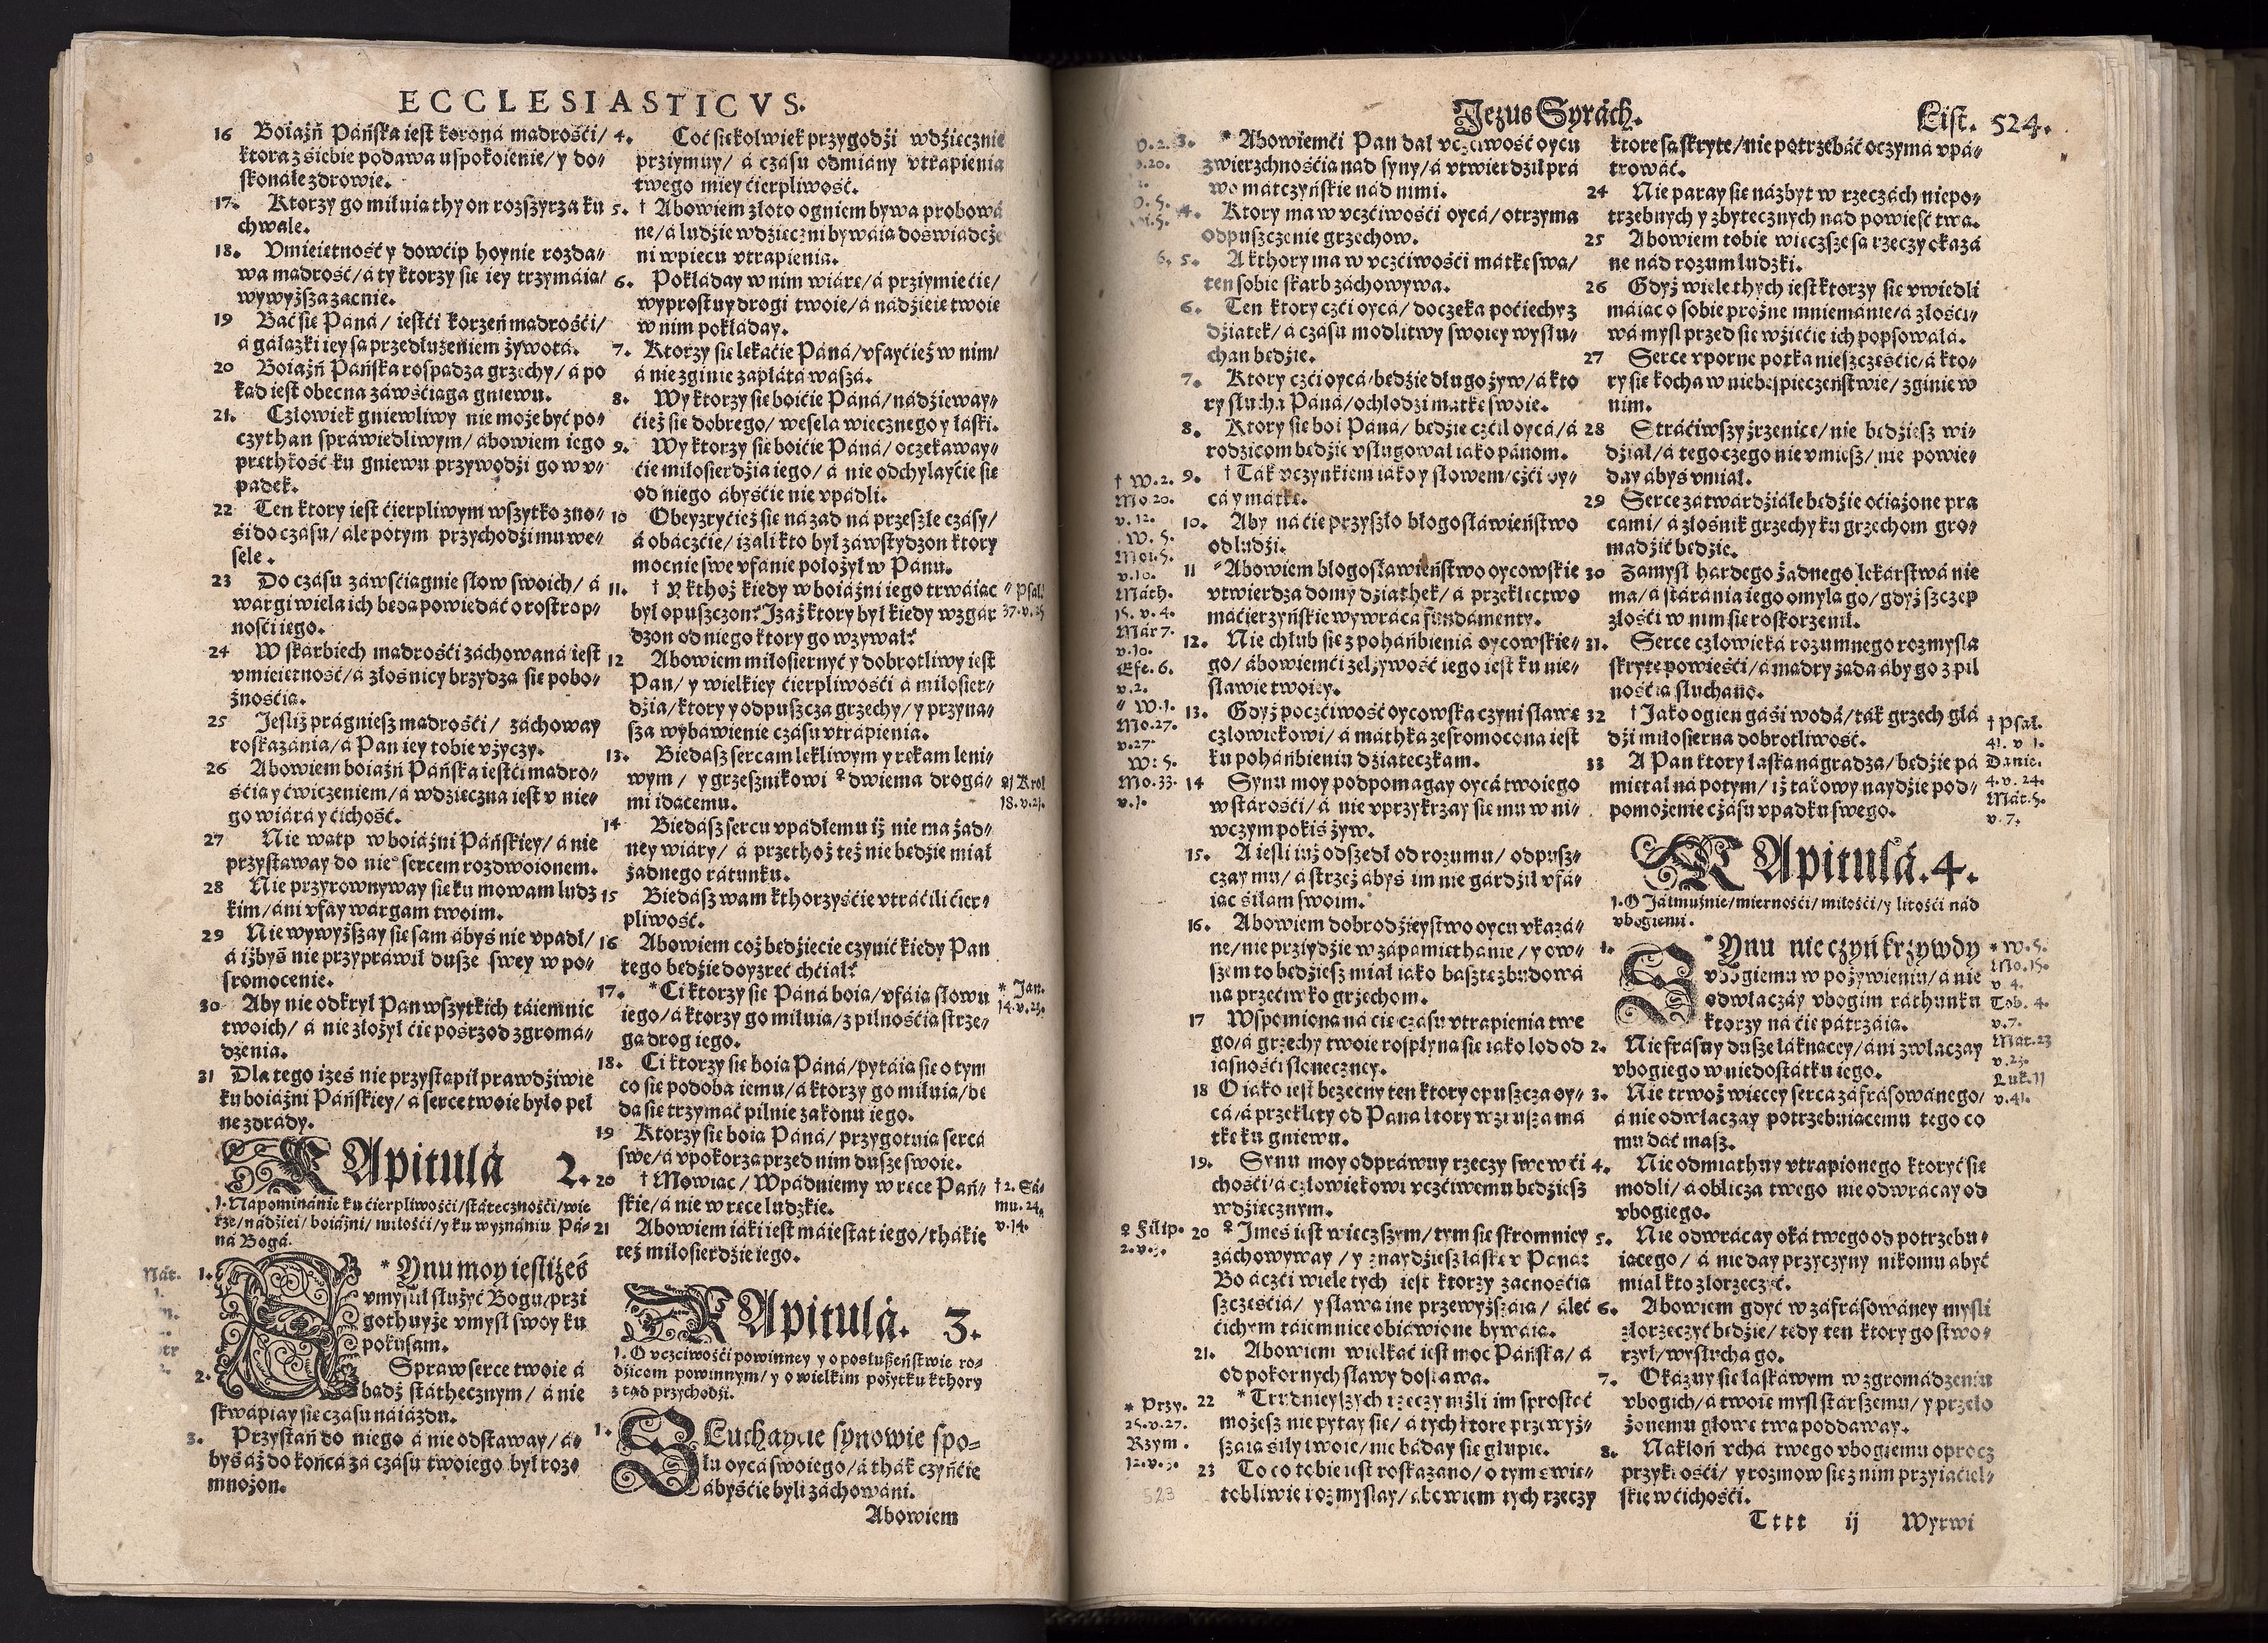 ECCLESIASTICVS.
16 Boiaźń Páńska iest koroná mądrośći/
ktora z śiebie podawa uspokoienie/ y do⸗
skonáłe zdrowie.
17. Ktorzy go miłuią thy on rozszyrza ku
chwale.
18. Vmieiętność y dowćip hoynie rozda⸗
wa mądrość/ á ty ktorzy się iey trzymáią/
wywyższa zacnie.
19 Bać się Páná/ iestći korzeń mądrośći/
á gáłązki iey są przedłużeniem żywotá.
20 Boiaźń Páńska rospądza grzechy/ á po
kąd iest obecna záwśćiąga gniewu.
21. Człowiek gniewliwy nie może być po⸗
czythan spráwiedliwym/ ábowiem iego
prethkość ku gniewu przywodźi go w v⸗
padek.
22 Ten ktory iest ćierpliwym wszytko zno⸗
śi do czásu/ ale potym przychodźi mu we⸗
sele.
23 Do czásu záwśćiągnie słow swoich/ á
wárgi wiela ich będą powiedáć o rostrop⸗
nośći iego.
24 W skárbiech mądrośći záchowána iest
vmieiętność/ á złośnicy brzydzą się pobo⸗
żnośćią.
25 Jesliż prágniesz mądrośći/ záchoway
roskazánia/ á Pan iey tobie vżyczy.
26 Abowiem boiaźń Páńska iestći mądro⸗
śćią y ćwiczeniem/ á wdzięczna iest v nie⸗
go wiárá y ćichość.
27 Nie wątp w boiáźni Páńskiey/ á nie
przystaway do nie° sercem rozdwoionem.
28 Nie przyrownyway się ku mowam ludz
kim/ áni vfay wárgam twoim.
29 Nie wywyższay się sam ábyś nie vpadł/
á iżbyś nie przypráwił dusze swey w po⸗
sromocenie.
30 Aby nie odkrył Pan wszytkich táiemnic
twoich/ á nie złożył ćię pośrzod zgromá⸗
dzenia.
31 Dla tego iżeś nie przystąpił prawdźiwie
ku boiáźni Páńskiey/ á serce twoie było peł
ne zdrády.
KApitulá 2.
1. Nápominánie ku ćierpliwośći/ státecznośći/ wie
rze/ nádźiei/ boiáźni/ miłośći/ y ku wyznániu Pá⸗
ná Bogá.
1. * SYnu moy iesliżeś
vmyslił służyć Bogu/ przi
gothuyże vmysł swoy ku
pokusam.
2. Spraw serce twoie á
bądź státhecznym/ á nie
skwápiay się czásu náiázdu.
3. Przystań do niego á nie odstaway/ á⸗
byś áż do końcá zá czásu twoiego był roz⸗
mnożon.
4. Coć się kolwiek przygodźi wdźięcznie
prziymuy/ á czásu odmiány vtrapienia
twego miey ćierpliwość.
5. † Abowiem złoto ogniem bywa probowá
ne/ á ludźie wdźięczni bywáią doświádcże
ni w piecu vtrapienia.
6. Pokłáday w nim wiárę/ á prziymie ćię/
wyprostuy drogi twoie/ á nádźieię twoię
w nim pokłáday.
7. Ktorzy się lękaćie Páná/ vfayćież w nim/
á nie zginie zapłátá wászá.
8. Wy ktorzy się boićie Páná/ nádźieway⸗
ćież się dobrego/ wesela wiecznego y łáski.
9. Wy ktorzy się boićie Páná/ oczekaway⸗
ćie miłosierdźia iego/ á nie odchylayćie się
od niego ábyśćie nie vpádli.
10 Obeyzryćież się ná zad ná przeszłe czásy/
á obaczćie/ izali kto był záwstydzon ktory
mocnie swe vfánie położył w Pánu.
11. † Y kthoż kiedy w boiáźni iego trwáiąc
był opuszczon? Izaż ktory był kiedy wzgár
dzon od niego ktory go wzywał?
12 Abowiem miłosiernyć y dobrotliwy iest
Pan/ y wielkiey ćierpliwośći á miłosier⸗
dźia/ ktory y odpuszcza grzechy/ y przyná⸗
sza wybáwienie czásu vtrapienia.
13. Biedasz sercam lękliwym y rękam leni⸗
wym/ y grzesznikowi ♀ dwiemá drogá⸗
mi idącemu.
14 Biedasz sercu vpádłemu iż nie ma żad⸗
ney wiáry/ á przethoż też nie będźie miał
żadnego rátunku.
15 Biedasz wam kthorzyśćie vtráćili ćier⸗
pliwość.
16 Abowiem coż będźiecie czynić kiedy Pan
tego będźie doyzreć chćiał?
17. * Ci ktorzy się Páná boią/ vfáią słowu
iego/ á ktorzy go miłuią/ z pilnośćią strze⸗
gą drog iego.
18. Ci ktorzy się boią Páná/ pytáią się o tym
co się podoba iemu/ á ktorzy go miłuią/ bę
dą się trzymáć pilnie zakonu iego.
19 Ktorzy się boią Páná/ przygotuią sercá
swe/ á vpokorzą przed nim dusze swoie.
20 † Mowiąc/ Wpádniemy w ręce Páń⸗
skie/ á nie w ręce ludzkie.
21 Abowiem iáki iest máiestat iego/ thákie
też miłosierdźie iego.
KApitulá. 3.
1. O vczćiwośći powinney y o posłuszeństwie ro⸗
dźicom powinnym/ y o wielkim pożytku kthory
z tąd przychodźi.
1. SLuchayćie synowie spo⸗
łu oycá swoiego/ á thák czyńćie
ábyśćie byli záchowáni.
Abowiem
" Psal.
37. v. 25
2) Krol
18. v. 21.
* Jan.
14. v. 23.
† 2. Sá⸗
mu. 24.
v. 14.
Jezus Syrách. List. 524.
3. * Abowiemći Pan dał vczćiwość oycu
zwierzchnośćią nád syny/ á vtwierdźił prá
wo mátczyńskie nád nimi.
4. Ktory ma w vczćiwośći oycá/ otrzyma
odpuszczenie grzechow.
5. A kthory ma w vczćiwośći mátkę swą/
ten sobie skarb záchowywa.
6. Ten ktory czći oycá/ doczeka poćiechy z
dźiatek/ á czásu modlitwy swoiey wysłu⸗
chan będźie.
7. Ktory czći oycá/ będźie długo żyw/ á kto
ry słucha Páná/ ochłodzi mátkę swoię.
8. Ktory się boi Páná/ będźie czćił oycá/ á
rodźicom będźie vsługował iáko pánom.
9. † Ták vczynkiem iáko y słowem/ cżći oy⸗
cá y mátkę.
10. Aby ná ćię przyszło błogosłáwieństwo
od ludźi.
11 " Abowiem błogosłáwieństwo oycowskie
vtwierdza domy dźiathek/ á przeklęctwo
máćierzyńskie wywráca fundámenty.
12. Nie chłub się z poháńbienia oycowskie⸗
go/ ábowiemći zelżywość iego iest ku nie⸗
sławie twoiey.
13. Gdyż poczćiwość oycowska czyni sławę
człowiekowi/ á máthká zesromocona iest
ku poháńbieniu dźiateczkam.
14 Synu moy podpomagay oycá twoiego
w stárośći/ á nie vprzykrzay się mu w ni⸗
wczym pokiś żyw.
15. A iesli iuż odszedł od rozumu/ odpusz⸗
czay mu/ á strzeż ábyś im nie gárdźił vfá⸗
iąc śiłam swoim.
16. Abowiem dobrodźieystwo oycu vkazá⸗
ne/ nie prziydźie w zápámięthanie/ y ow⸗
szem to będźiesz miał iáko básztę zbudowá
ną przećiwko grzechom.
17 Wspomioną ná ćię czásu vtrapienia twe
go/ á grzechy twoie rospłyną się iáko lod od
iásnośći słoneczney.
18 O iáko iest bezecny ten ktory opuszcza oy⸗
cá/ á przeklęty od Páná ktory wzrusza má
tkę ku gniewu.
19. Synu moy odpráwuy rzeczy swe w ći
chośći/ á człowiekowi vczćiwemu będźiesz
wdźięcznym.
20 ♀ Imeś iest więczszym/ tym się skromniey
záchowyway/ y znaydźiesz łáskę v Páná:
Bo áczći wiele tych iest ktorzy zacnośćią
szczęśćia/ y sławą ine przewyższáią/ áleć
ćichym táiemnice obiáwione bywáią.
21. Abowiem wielkać iest moc Páńska/ á
od pokornych sławy dostawa.
22 * Trudnieyszych rzeczy niżli im sprostáć
możesz nie pytay się/ á tych ktore przewyż⸗
száią śiły twoie/ nie báday się głupie.
23 To co tobie iest roskazano/ o tym świe⸗
tobliwie rozmyslay/ ábowiem tych rzeczy
ktore są skryte/ nie potrzebáć oczymá vpá⸗
trowáć.
24 Nie paray się názbyt w rzeczách niepo⸗
trzebnych y zbytecznych nád powieść twą.
25 Abowiem tobie więczsze są rzeczy okazá
ne nád rozum ludzki.
26 Gdyż wiele thych iest ktorzy się vwiedli
máiąc o sobie prożne mniemánie/ á złośći⸗
wá mysl przed się wźięćie ich popsowáłá.
27 Serce vporne potka nieszczęśćie/ á kto⸗
ry się kocha w niebespieczeństwie/ zginie w
nim.
28 Stráćiwszy źrzenice/ nie będźiesz wi⸗
dźiał/ á tego czego nie vmiesz/ nie powie⸗
day ábyś vmiał.
29 Serce zátwárdźiáłe będźie oćiążone prá
cámi/ á złośnik grzechy ku grzechom gro⸗
mádźić będźie.
30 Zamysł hárdego żadnego lekárstwá nie
ma/ á stáránia iego omylą go/ gdyż szczep
złośći w nim się roskorzenił.
31. Serce człowieká rozumnego rozmyśla
skryte powieśći/ á mądry żąda áby go z pil
nośćią słuchano.
32 † Jáko ogień gáśi wodá/ ták grzech głá
dźi miłosierna dobrotliwość.
33 A Pan ktory łáską nágradza/ będźie pá
miętał ná potym/ iż tákowy naydźie pod⸗
pomożenie czásu vpadku swego.
KApitulá. 4.
1. O Jáłmużnie/ miernośći/ miłośći/ y litośći nád
vbogiemi.
1. * SYnu nie czyń krzywdy
vbogiemu w pożywieniu/ á nie
odwłaczay vbogim ráthunku
ktorzy ná ćię pátrzáią.
2. Nie frásuy dusze łáknącey/ áni zwłaczay
vbogiego w niedostátku iego.
3. Nie trwoż więcey sercá záfrásowánego/
á nie odwłaczay potrzebuiącemu tego co
mu dáć masz.
4. Nie odmiáthuy vtrapionego ktoryć się
modli/ á oblicza twego nie odwracay od
vbogiego.
5. Nie odwrácay oká twego od potrzebu⸗
iącego/ á nie day przyczyny nikomu ábyć
miał kto złorzeczyć.
6. Abowiem gdyć w záfrásowáney mysli
złorzeczyć będźie/ tedy ten ktory go stwo⸗
rzył/ wysłucha go.
7. Okázuy się łáskáwym w zgromádzeniu
vbogich/ á twoię mysl stárszemu/ y przeło
żonemu głowę twą poddaway.
8. Nakłoń vchá twego vbogiemu oprocz
przykrośći/ y rozmow się z nim przyiáćiel⸗
skie w ćichośći.
Tttt ij Wyrwi
† W. 2.
Mo 20.
v. 12.
W. 5.
Moi. 5.
v. 10.
Máth.
15. v. 4.
Már 7.
v. 10.
Efe. 6.
v. 2.
" W. 1.
Mo. 27.
v. 27
W: 5.
Mo. 33.
v. 1.
♀ Filip.
2. v. 3.
* Przy.
25. v. 27.
Rzym.
12. v. 3.
523
† Psal.
41. v 1.
Danie.
4. v. 24.
Mát. 5.
v. 7.
* W. 5.
Mo. 15.
v. 4.
Tob. 4.
v. 7.
Mat. 23
v. 23.
Luk. 11
v. 41.